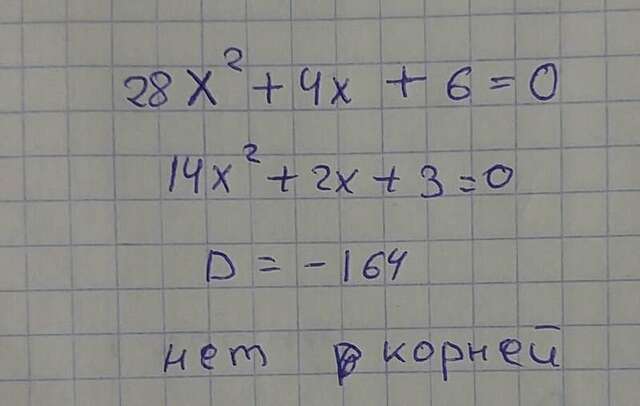 28x² + 4x + 6 = 0
14x² + 2x + 3 = 0
D = -164
нет корней